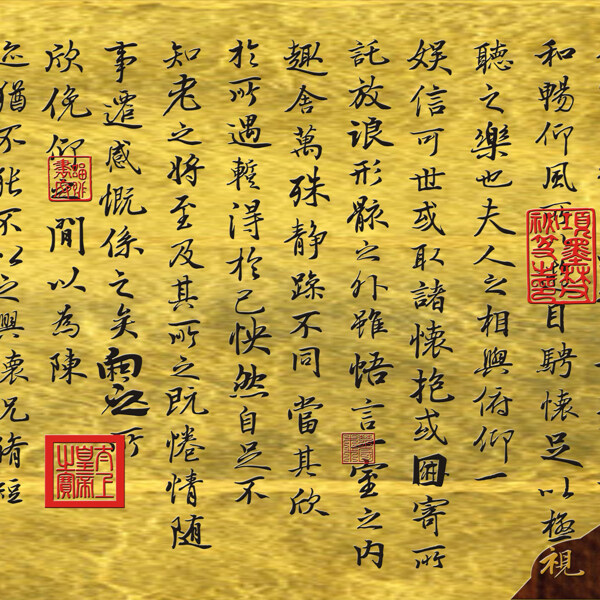 和暢仰風所目騁懷足以極
聽之樂也夫人之相與俯仰一
娛信可世或取諸懷抱或因寄所
託放浪形骸之外雖悟言一室之內
趣舍萬殊靜躁不同當其欣
於所遇暫得於己怏然自足不
知老之將至及其所之既惓情隨
事遷感慨係之矣向之所
欣俛仰之間以為陳
迹猶不能不以之興懷況脩短
視
太上皇帝之寶